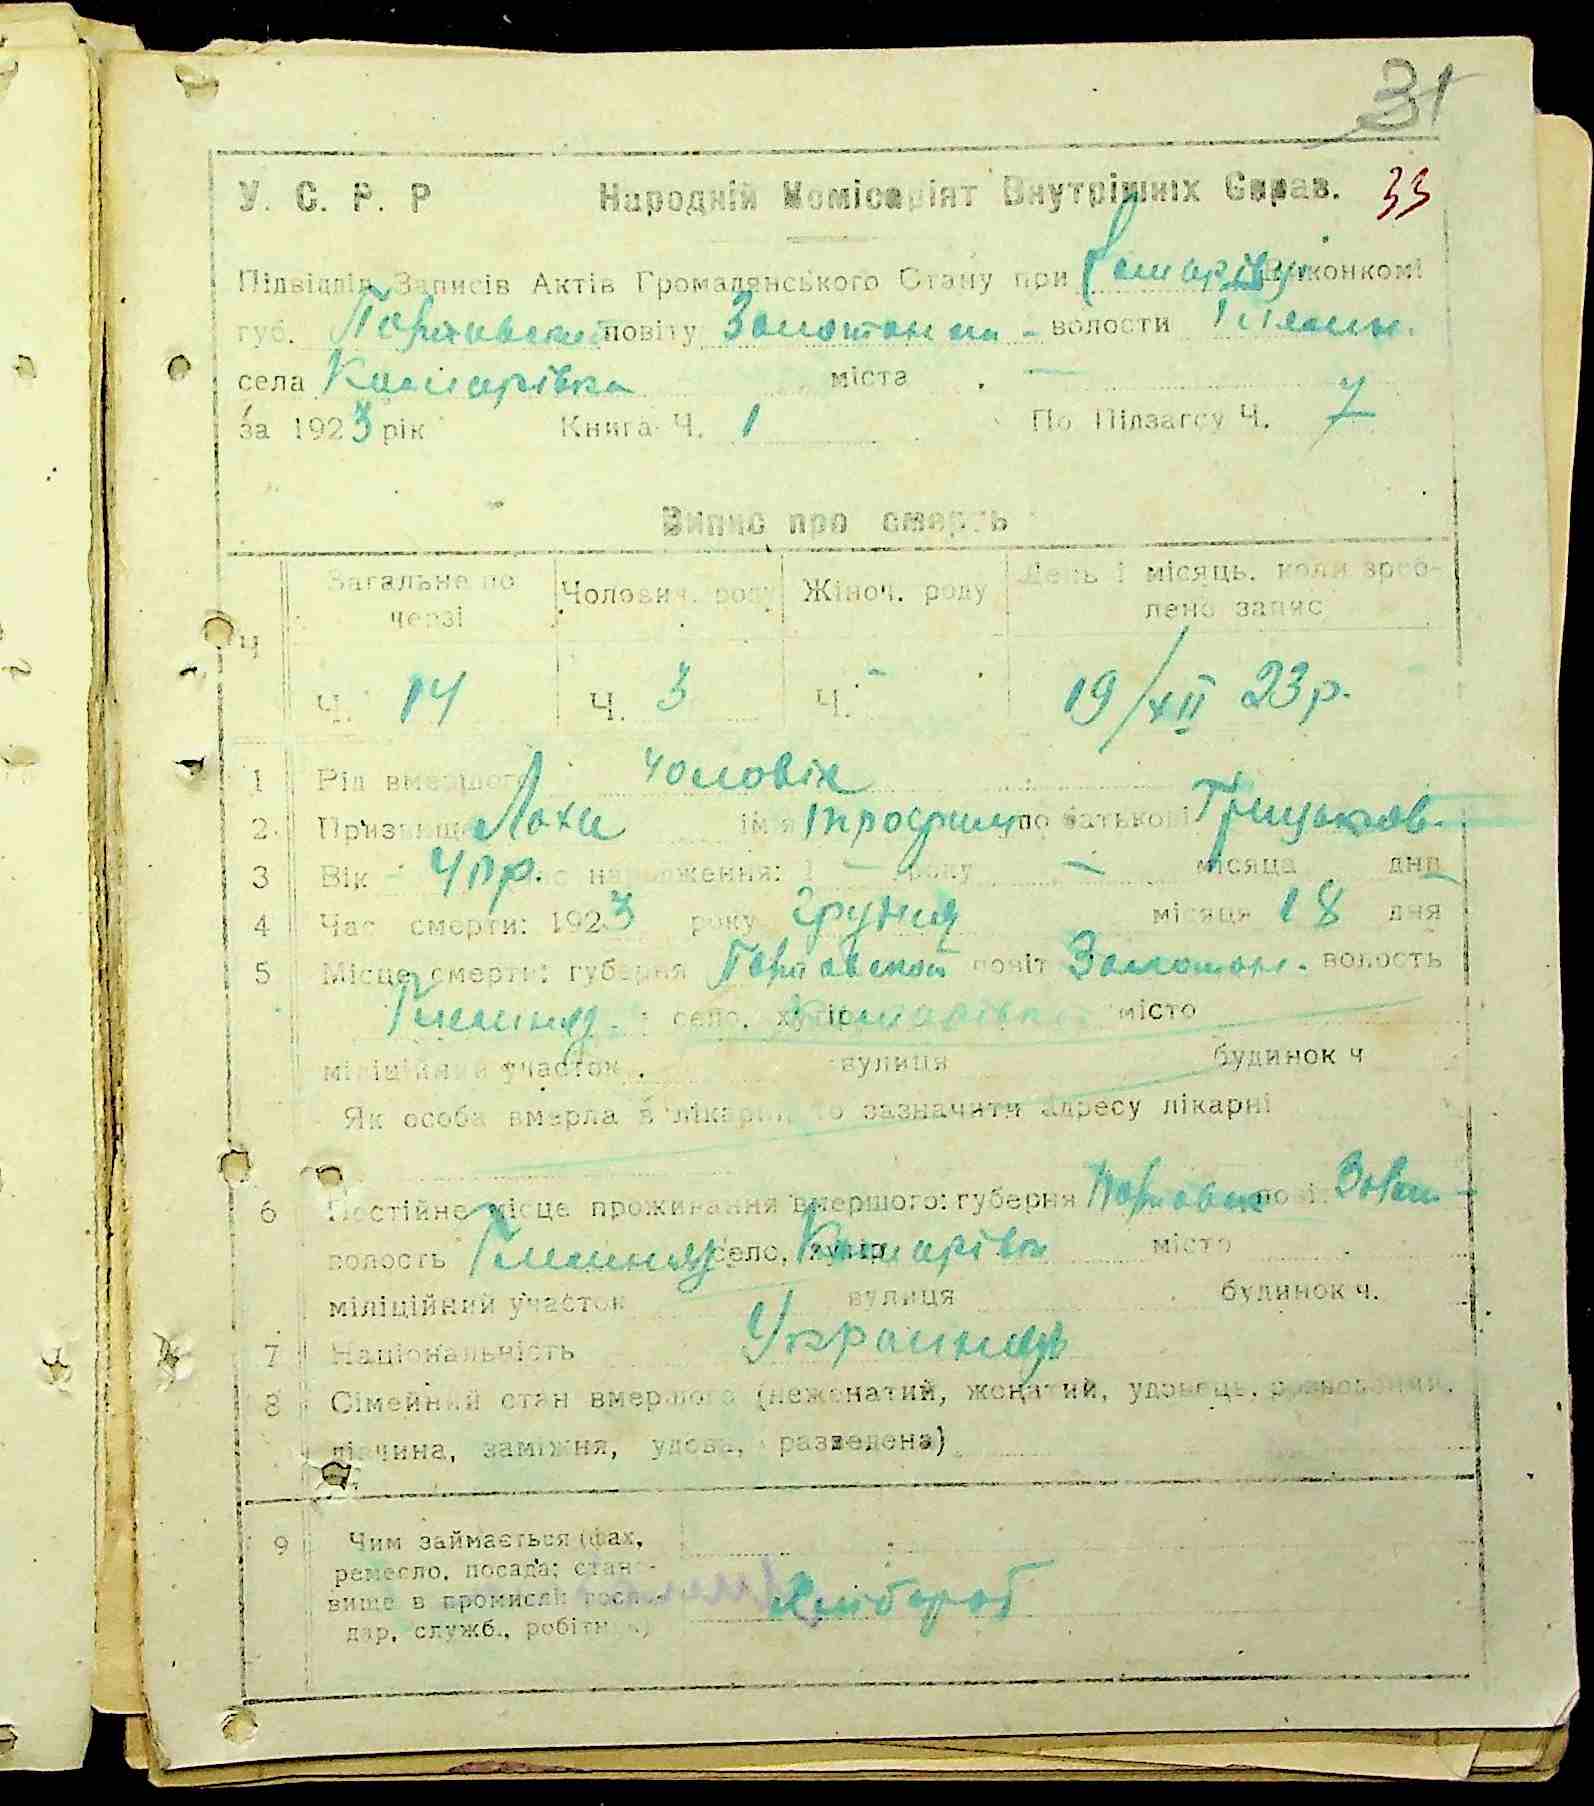 31
У. С. Р. Р Народній Комісаріят Внутрішніх Справ. 33
Підвідділ Записів Актів Громадянського Стану при Виконкомі
губ. Полтавської повіту Золотоні - волости
села Комарівка міста . —
за 1923 рік Книга Ч. 1 По Підзагсу Ч. 7
Випис про смерть
Ч Загальне по черзі Чоловіч. роду Жіноч. роду День і місяць, коли зроблено запис
Ч. 14 Ч. 3 Ч. - 19/XII 23 р.
1 Рід вмершого чоловік
2 Призвище Лоха ім'я Трофим по батькові Грицьков.
3 Вік народження: 1 — року — місяца дня
4 Час смерти: 1923 року грудня місяця 18 дня
5 Місце смерти: губерня повіт Золотон. волость
село, хутір Комарівка місто
міліційний участок . вулиця будинок ч
Як особа вмерла в лікарні, то зазначити адресу лікарні
6 Постійне місце проживання вмершого: губерня повіт Золот -
волость село, хутір Комарівка місто
міліційний участок вулиця будинок ч.
7 Національність Українець
8 Сімейний стан вмершого (неженатий, жонатий, удовець, розведений,
дівчина, заміжня, удова, разведена)
9 Чим займається (фах,
ремесло, посада; стано-
вище в промислі: госпо-
дар, служб., робітник)
Хлібороб